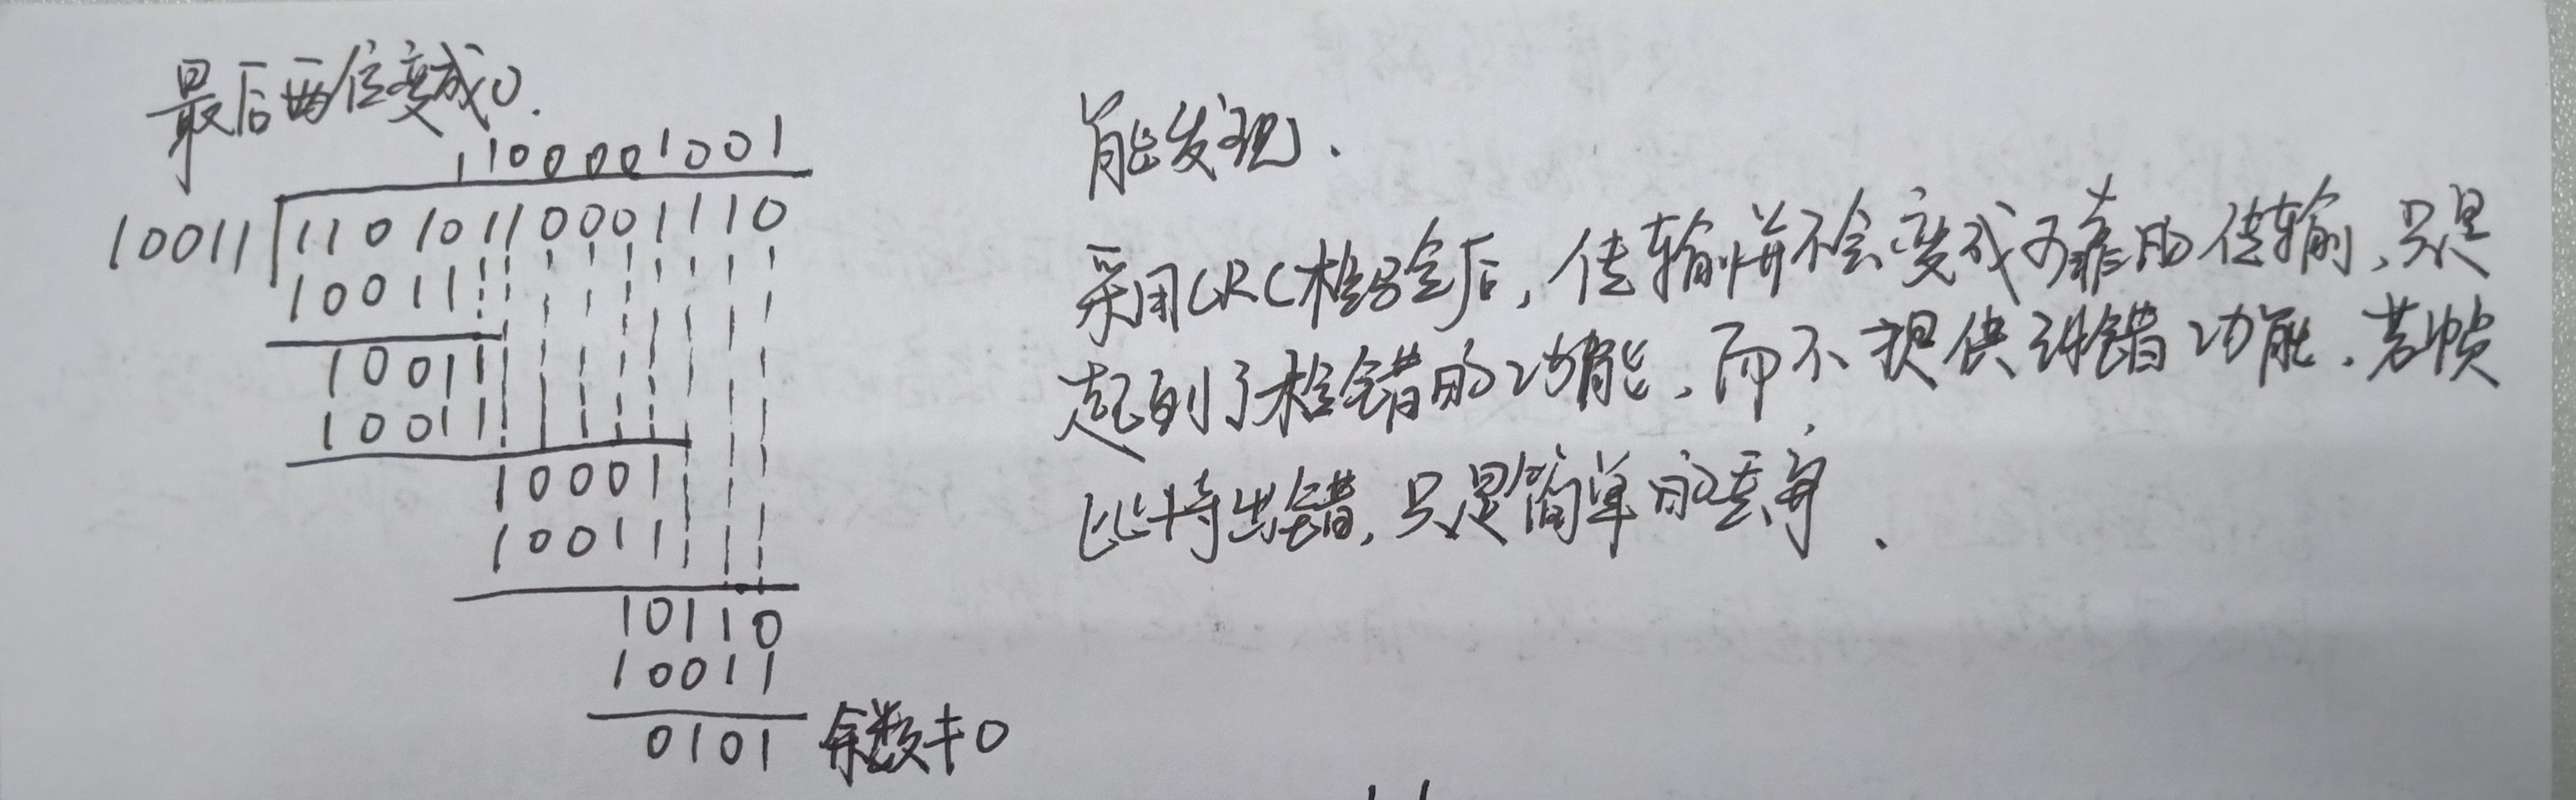 最后两位变成0.
1100001001
10011 11010110001110
10011
10011
10011
10001
10011
10110
10011
0101 余数≠0
能发现.
采用CRC检验后,传输并不会变成可靠的传输,只是
起到了检错的功能,而不提供纠错功能.若帧
比特出错,只是简单的丢弃.